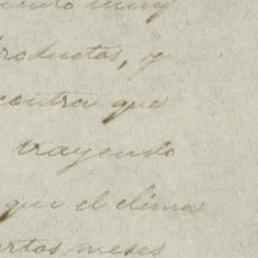 muy
roductos, y
contra que
trayendo
que el clima
ertos meses